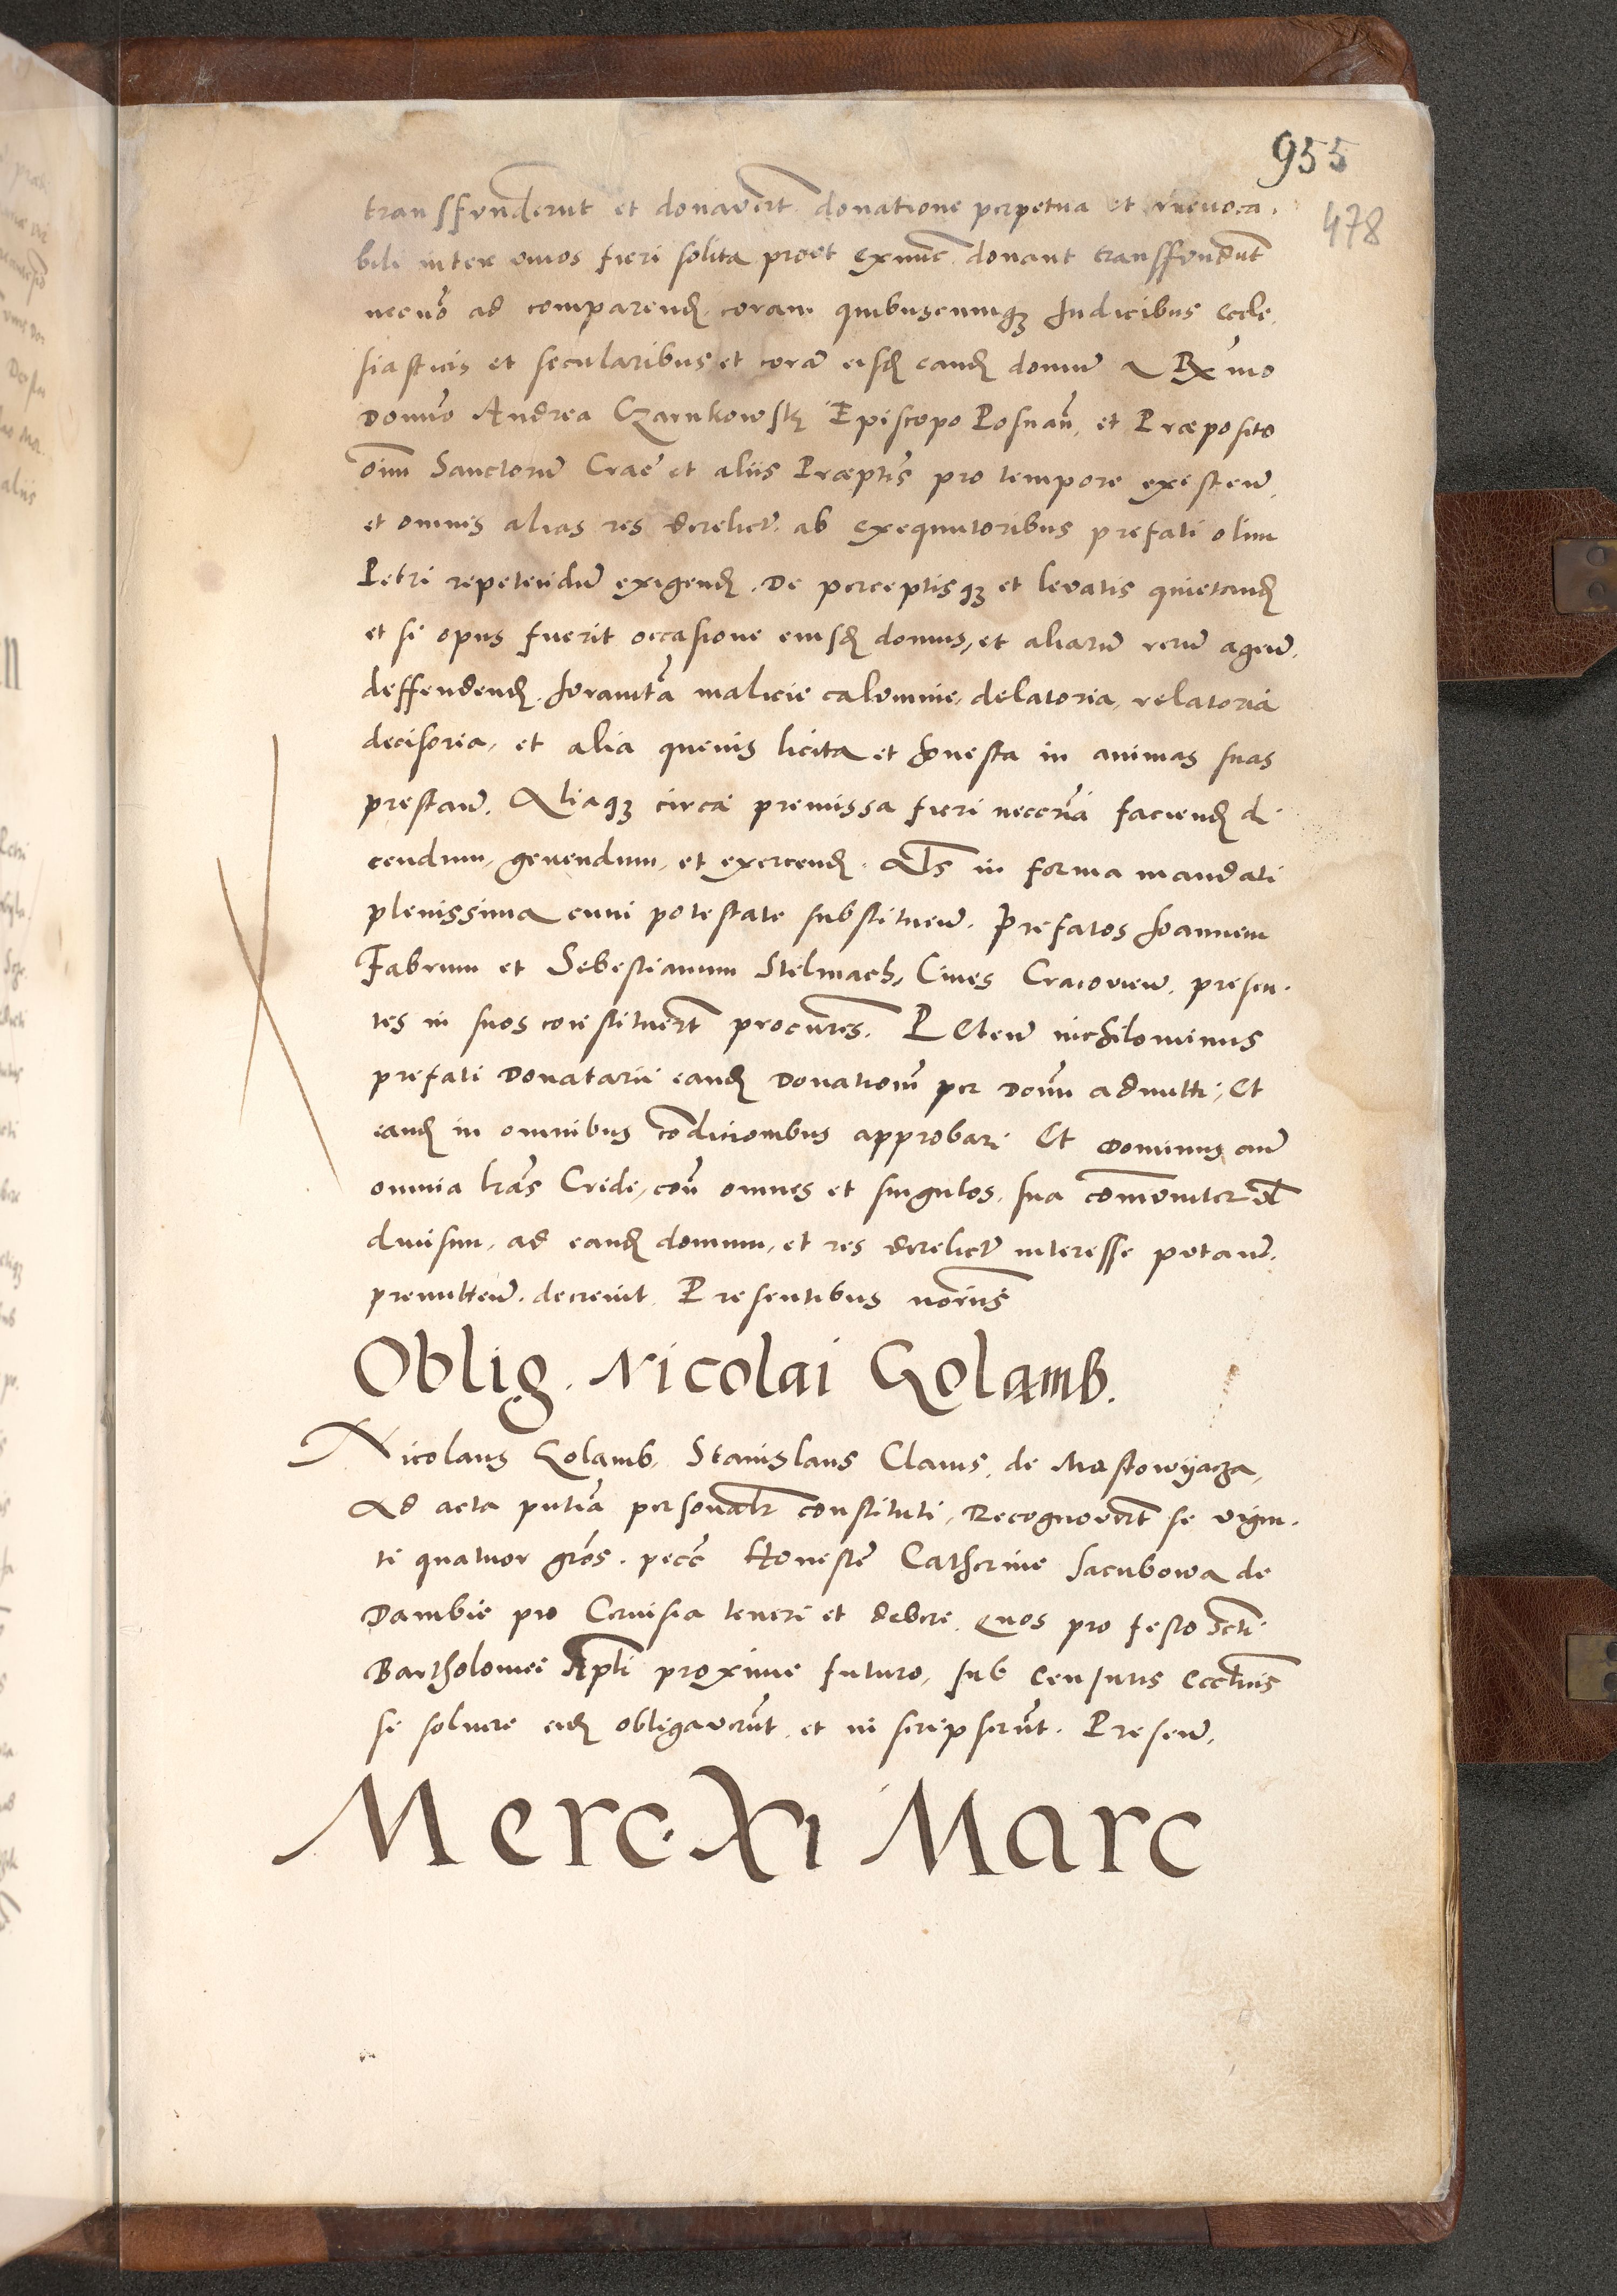 955
478
transffunderut et donavert donatione perpetua et irrevoca.
bili inter vivos fieri solita prout exnunc donant transffundut
necno ad comparend. coram quibuscumqz Judicibus Eccle.
siasticis et secularibus et cora eisd eand domu a Rx̄mo
Domno Andrea Czarnkowskj Episcopo Posnan, et Præposito
oim Sanctoru Crae et aliis Præptis pro tempore existen.
et omnis alias res derelict. ab exequutoribus prefati olim
Petri repetendu exigend. De perceptisqz et levatis quietand
et si opus fuerit occasione eiusd domus, et aliaru reru agen.
deffendend. Juramta malicie calumnie, delatoria, relatoria
decisoria, et alia quevis licita et honesta in animas suas
prestan. Aliaqz circa premissa fieri necoria faciend di
cendum, gerendum, et exercend. Als in forma mandati
plenissima cum potestate substituen. Prefatos Joannem
Fabrum et Sebestianum Stelmach, Cives Cracovien. presen.
tes in suos constituert procures. Peten nichilominus
prefati Donatarii eand Donationem per Domn admitti, Et
eand in omnibus condicionibus approbari Et Dominus
omnia omnes et singulos, sua comuniter vl
divisim, ad eand domum, et res derelict interesse putan.
premitten. decrevit. Presentibus noriis
Oblig. Nicolai Golamb.
Nicolaus Golamb, Stanislaus Clavus, de
Ad acta pntia personalr constituti, Recognovert se vigin.
ti quatuor gros. pecc Honeste Catherine Jacubowa de
Dambie pro Cervisia teneri et debere. Quos pro festo scti
Bartholomei Apli proxime futuro, sub Censuris Ecclnis
se solvere eid obligaverut, et in scripserut. Presen.
Merc. Xi Marc